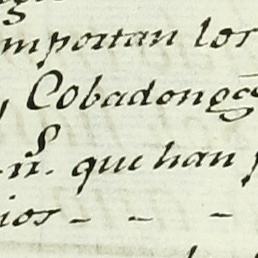 importan los
Cobadonga
que han
ios - - -